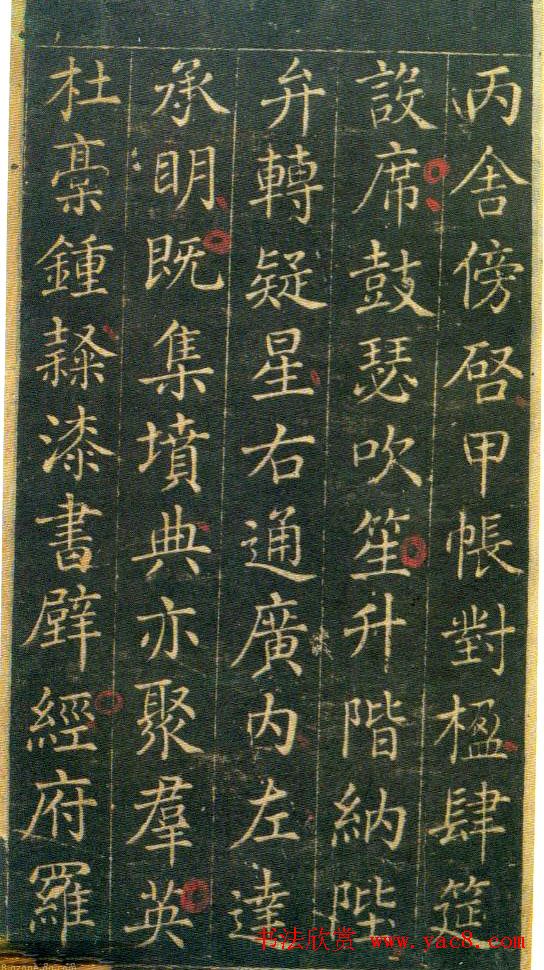 丙舍傍啓甲帳對楹肆筵
設席鼓瑟吹笙升階納陛
弁轉疑星右通廣内左達
承明既集墳典亦聚羣英
杜稾鍾隸漆書壁經府羅
书法欣赏 www.yac8.com